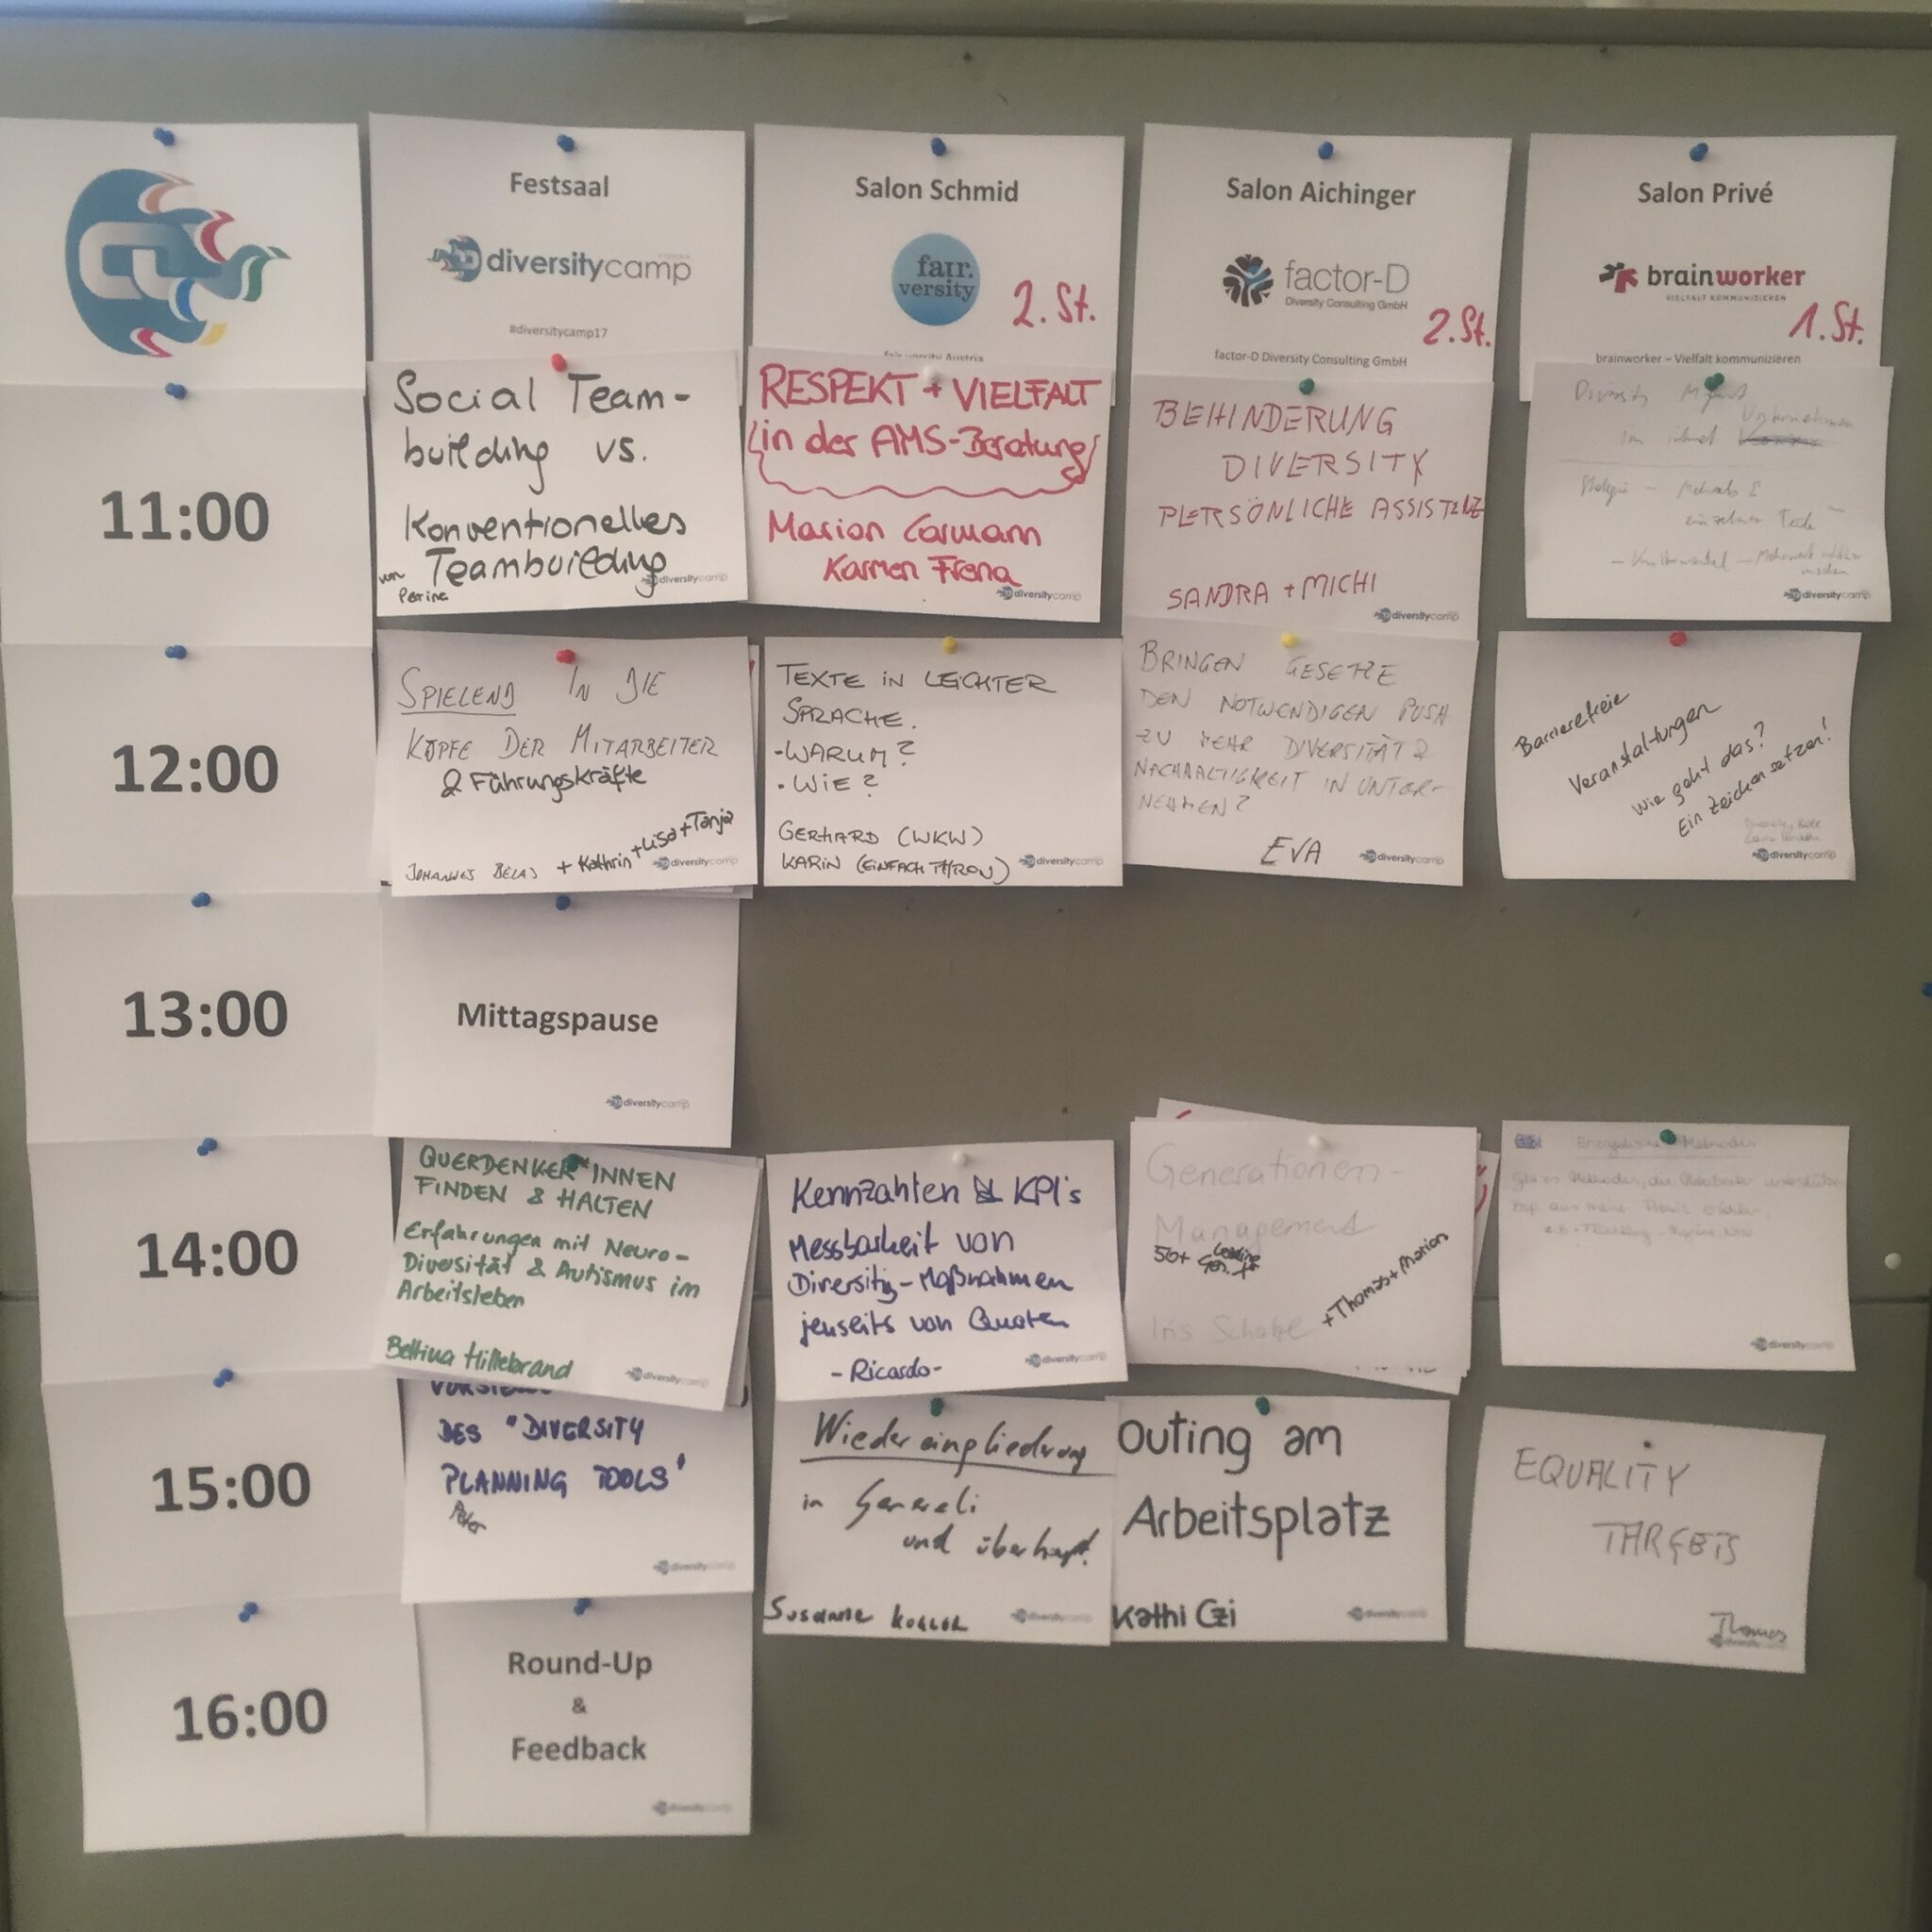 Festsaal
diversitycamp
#diversitycamp17
Salon Schmid
fair.
versity
2. St.
Salon Aichinger
factor-D
Diversity Consulting GmbH
2. St.
factor-D Diversity Consulting GmbH
Salon Privé
brainworker
VIELFALT KOMMUNIZIEREN
1. St.
brainworker – Vielfalt kommunizieren
11:00
Social Team-
building vs.
Konventionelles
Teambuilding
von
diversitycamp
RESPEKT + VIELFALT
in der AMS-Beratung
Marion Carmann
Karmen Frena
diversitycamp
BEHINDERUNG
DIVERSITY
PERSÖNLICHE ASSISTENZ
SANDRA + MICHI
diversitycamp
Diversity
im
diversitycamp
12:00
SPIELEND IN DIE
KÖPFE DER MITARBEITER
& Führungskräfte
JOHANNES BELAS + Kathrin + Lisa + Tanja
diversitycamp
TEXTE IN LEICHTER
SPRACHE.
- WARUM?
• WIE?
GERHARD (WKW)
KARIN (EINFACH
diversitycamp
BRINGEN GESETZE
DEN NOTWENDIGEN PUSH
ZU MEHR DIVERSITÄT &
NACHHALTIGKEIT IN UNTER-
NEHMEN?
EVA
diversitycamp
Barrierefreie
Veranstaltungen
Wie geht das?
Ein Zeichen setzen!
diversitycamp
13:00
Mittagspause
diversitycamp
14:00
QUERDENKER*INNEN
FINDEN & HALTEN
Erfahrungen mit Neuro-
Diversität & Autismus im
Arbeitsleben
Bettina Hillebrand
diversitycamp
Kennzahlen & KPI's
Messbarkeit von
Diversity-Maßnahmen
jenseits von Quoten
- Ricardo -
diversitycamp
Generationen-
Management
50+
Iris
+Thomas+Marion
Methoden
diversitycamp
15:00
DES "DIVERSITY
PLANNING TOOLS"
Peter
diversitycamp
Wiedereingliederung
in
und überhaupt.
Susanne
diversitycamp
Outing am
Arbeitsplatz
Kathi Czi
diversitycamp
EQUALITY
TARGETS
Thomas
diversitycamp
16:00
Round-Up
&
Feedback
diversitycamp